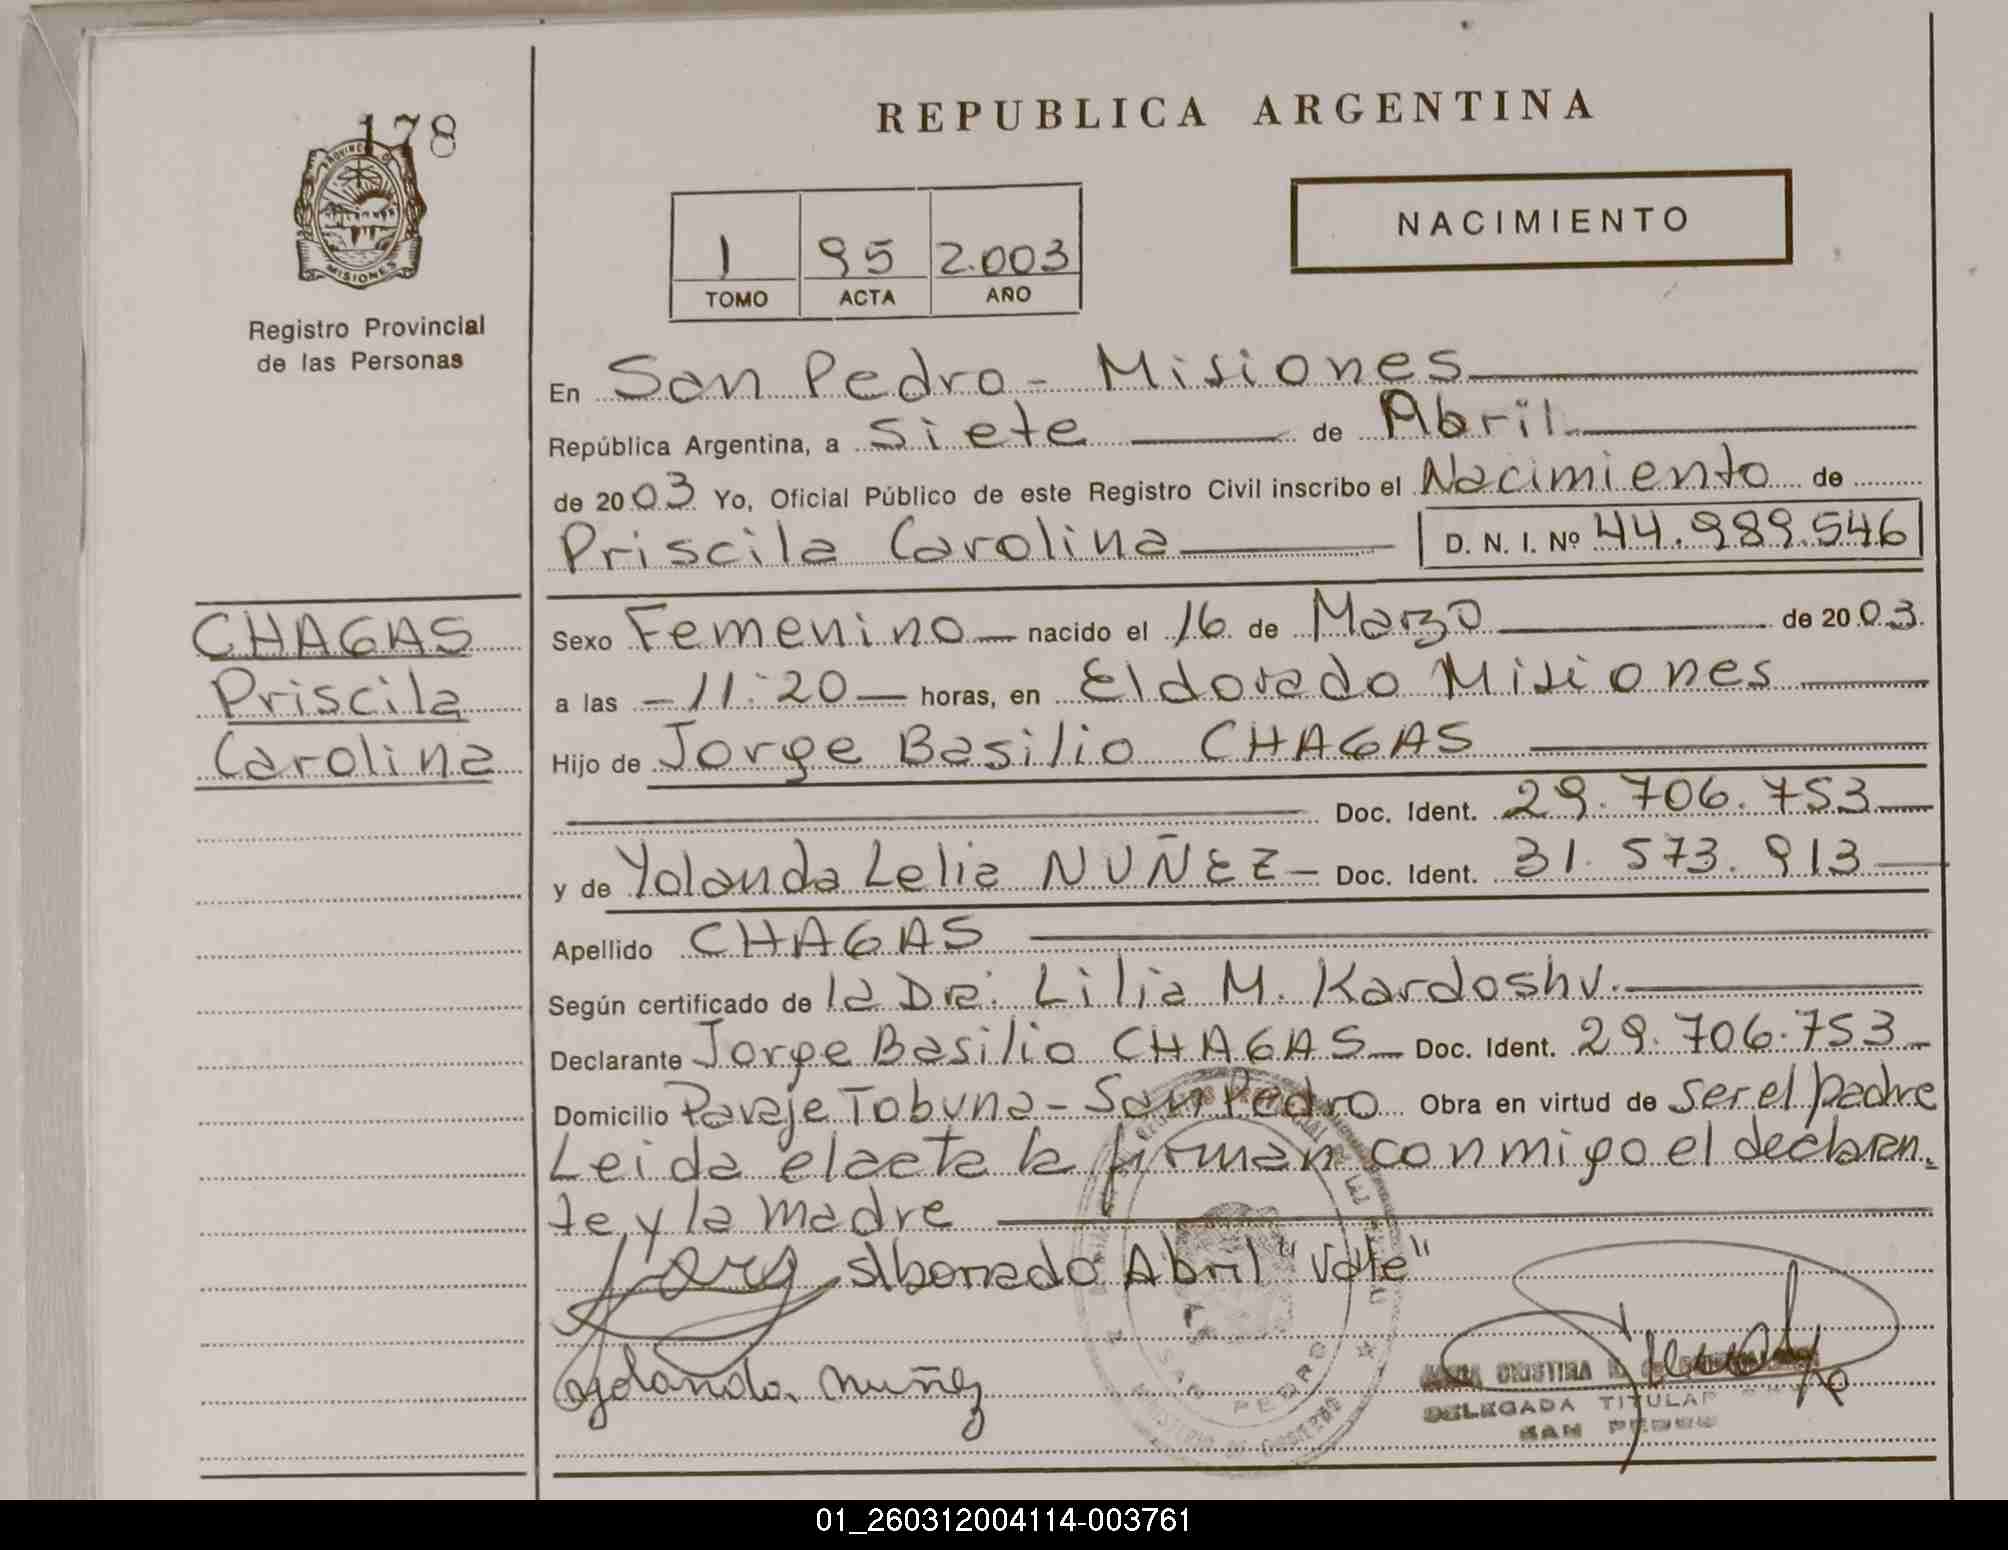 178
PROVINCIA DE
MISIONES
Registro Provincial
de las Personas
REPUBLICA ARGENTINA
NACIMIENTO
1 95 2.003
TOMO ACTA AÑO
En San Pedro - Misiones
República Argentina, a siete de Abril
de 2003 Yo, Oficial Público de este Registro Civil inscribo el Nacimiento de
Priscila Carolina D. N. I. Nº 44.989.546
CHAGAS
Priscila
Carolina
Sexo Femenino nacido el 16 de Marzo de 2003.
a las - 11:20 - horas, en Eldorado Misiones
Hijo de Jorge Basilio CHAGAS
Doc. Ident. 29.706.753
y de Yolanda Lelia NUÑEZ - Doc. Ident. 31.573.913
Apellido CHAGAS
Según certificado de la Dra. Lilia M. Kardoshv.
Declarante Jorge Basilio CHAGAS - Doc. Ident. 29.706.753
Domicilio Paraje Tobuna - San Pedro Obra en virtud de ser el padre
Leida el acta la firman conmigo el declaran-
te y la madre
s/borrado Abril "Vale"
Yolanda Nuñez
SAN PEDRO
CRISTINA
DELEGADA TITULAR
SAN PEDRO
01_260312004114-003761